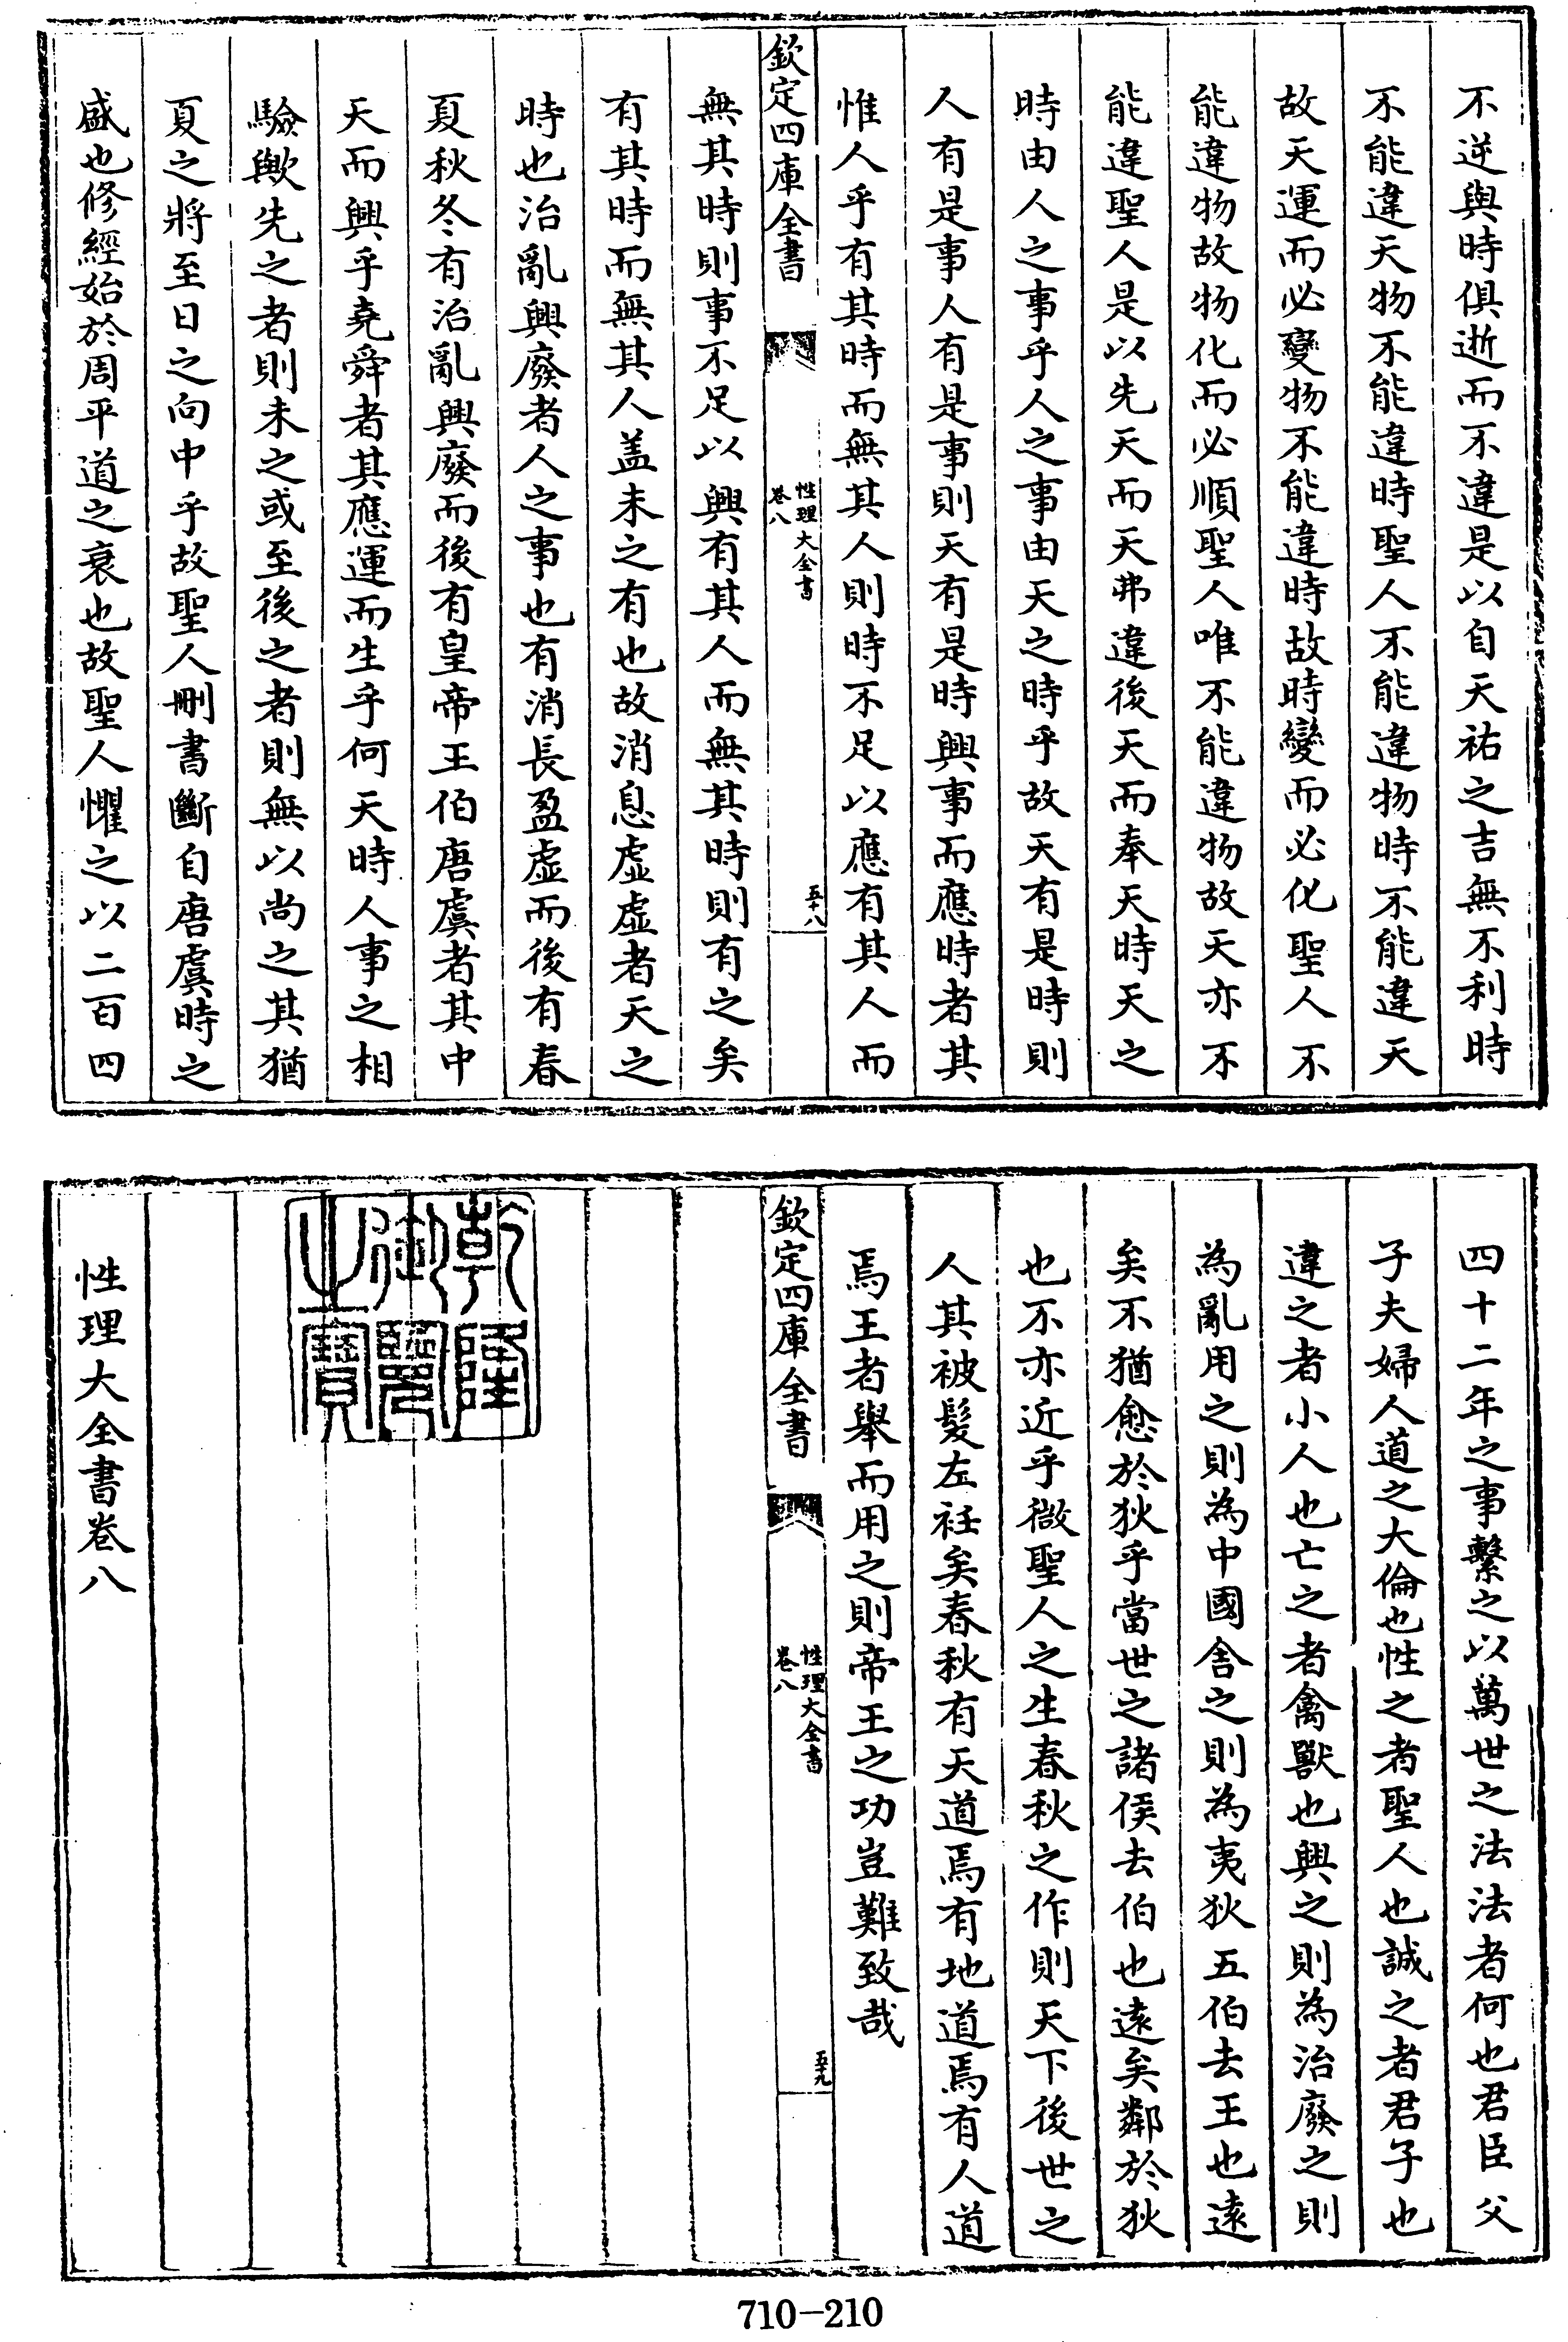 不逆與時俱逝而不違是以自天祐之吉無不利時
不能違天物不能違時聖人不能違物時不能違天
故天運而必變物不能違時故時變而必化聖人不
能違物故物化而必順聖人唯不能違物故天亦不
能違聖人是以先天而天弗違後天而奉天時天之
時由人之事乎人之事由天之時乎故天有是時則
人有是事人有是事則天有是時興事而應時者其
惟人乎有其時而無其人則時不足以應有其人而
欽定四庫全書
性理大全書
卷八
五十八
無其時則事不足以興有其人而無其時則有之矣
有其時而無其人盖未之有也故消息虚虚者天之
時也治亂興廢者人之事也有消長盈虚而後有春
夏秋冬有治亂興廢而後有皇帝王伯唐虞者其中
天而興乎堯舜者其應運而生乎何天時人事之相
驗歟先之者則未之或至後之者則無以尚之其猶
夏之將至日之向中乎故聖人刪書斷自唐虞時之
盛也修經始於周平道之衰也故聖人懼之以二百四
四十二年之事繫之以萬世之法法者何也君臣父
子夫婦人道之大倫也性之者聖人也誠之者君子也
違之者小人也亡之者禽獸也興之則為治廢之則
為亂用之則為中國舍之則為夷狄五伯去王也遠
矣不猶愈於狄乎當世之諸侯去伯也遠矣鄰於狄
也不亦近乎微聖人之生春秋之作則天下後世之
人其被髮左衽矣春秋有天道焉有地道焉有人道
焉王者舉而用之則帝王之功豈難致哉
欽定四庫全書
性理大全書
卷八
五十九
乾隆
御覽
之寶
性理大全書卷八
710-210